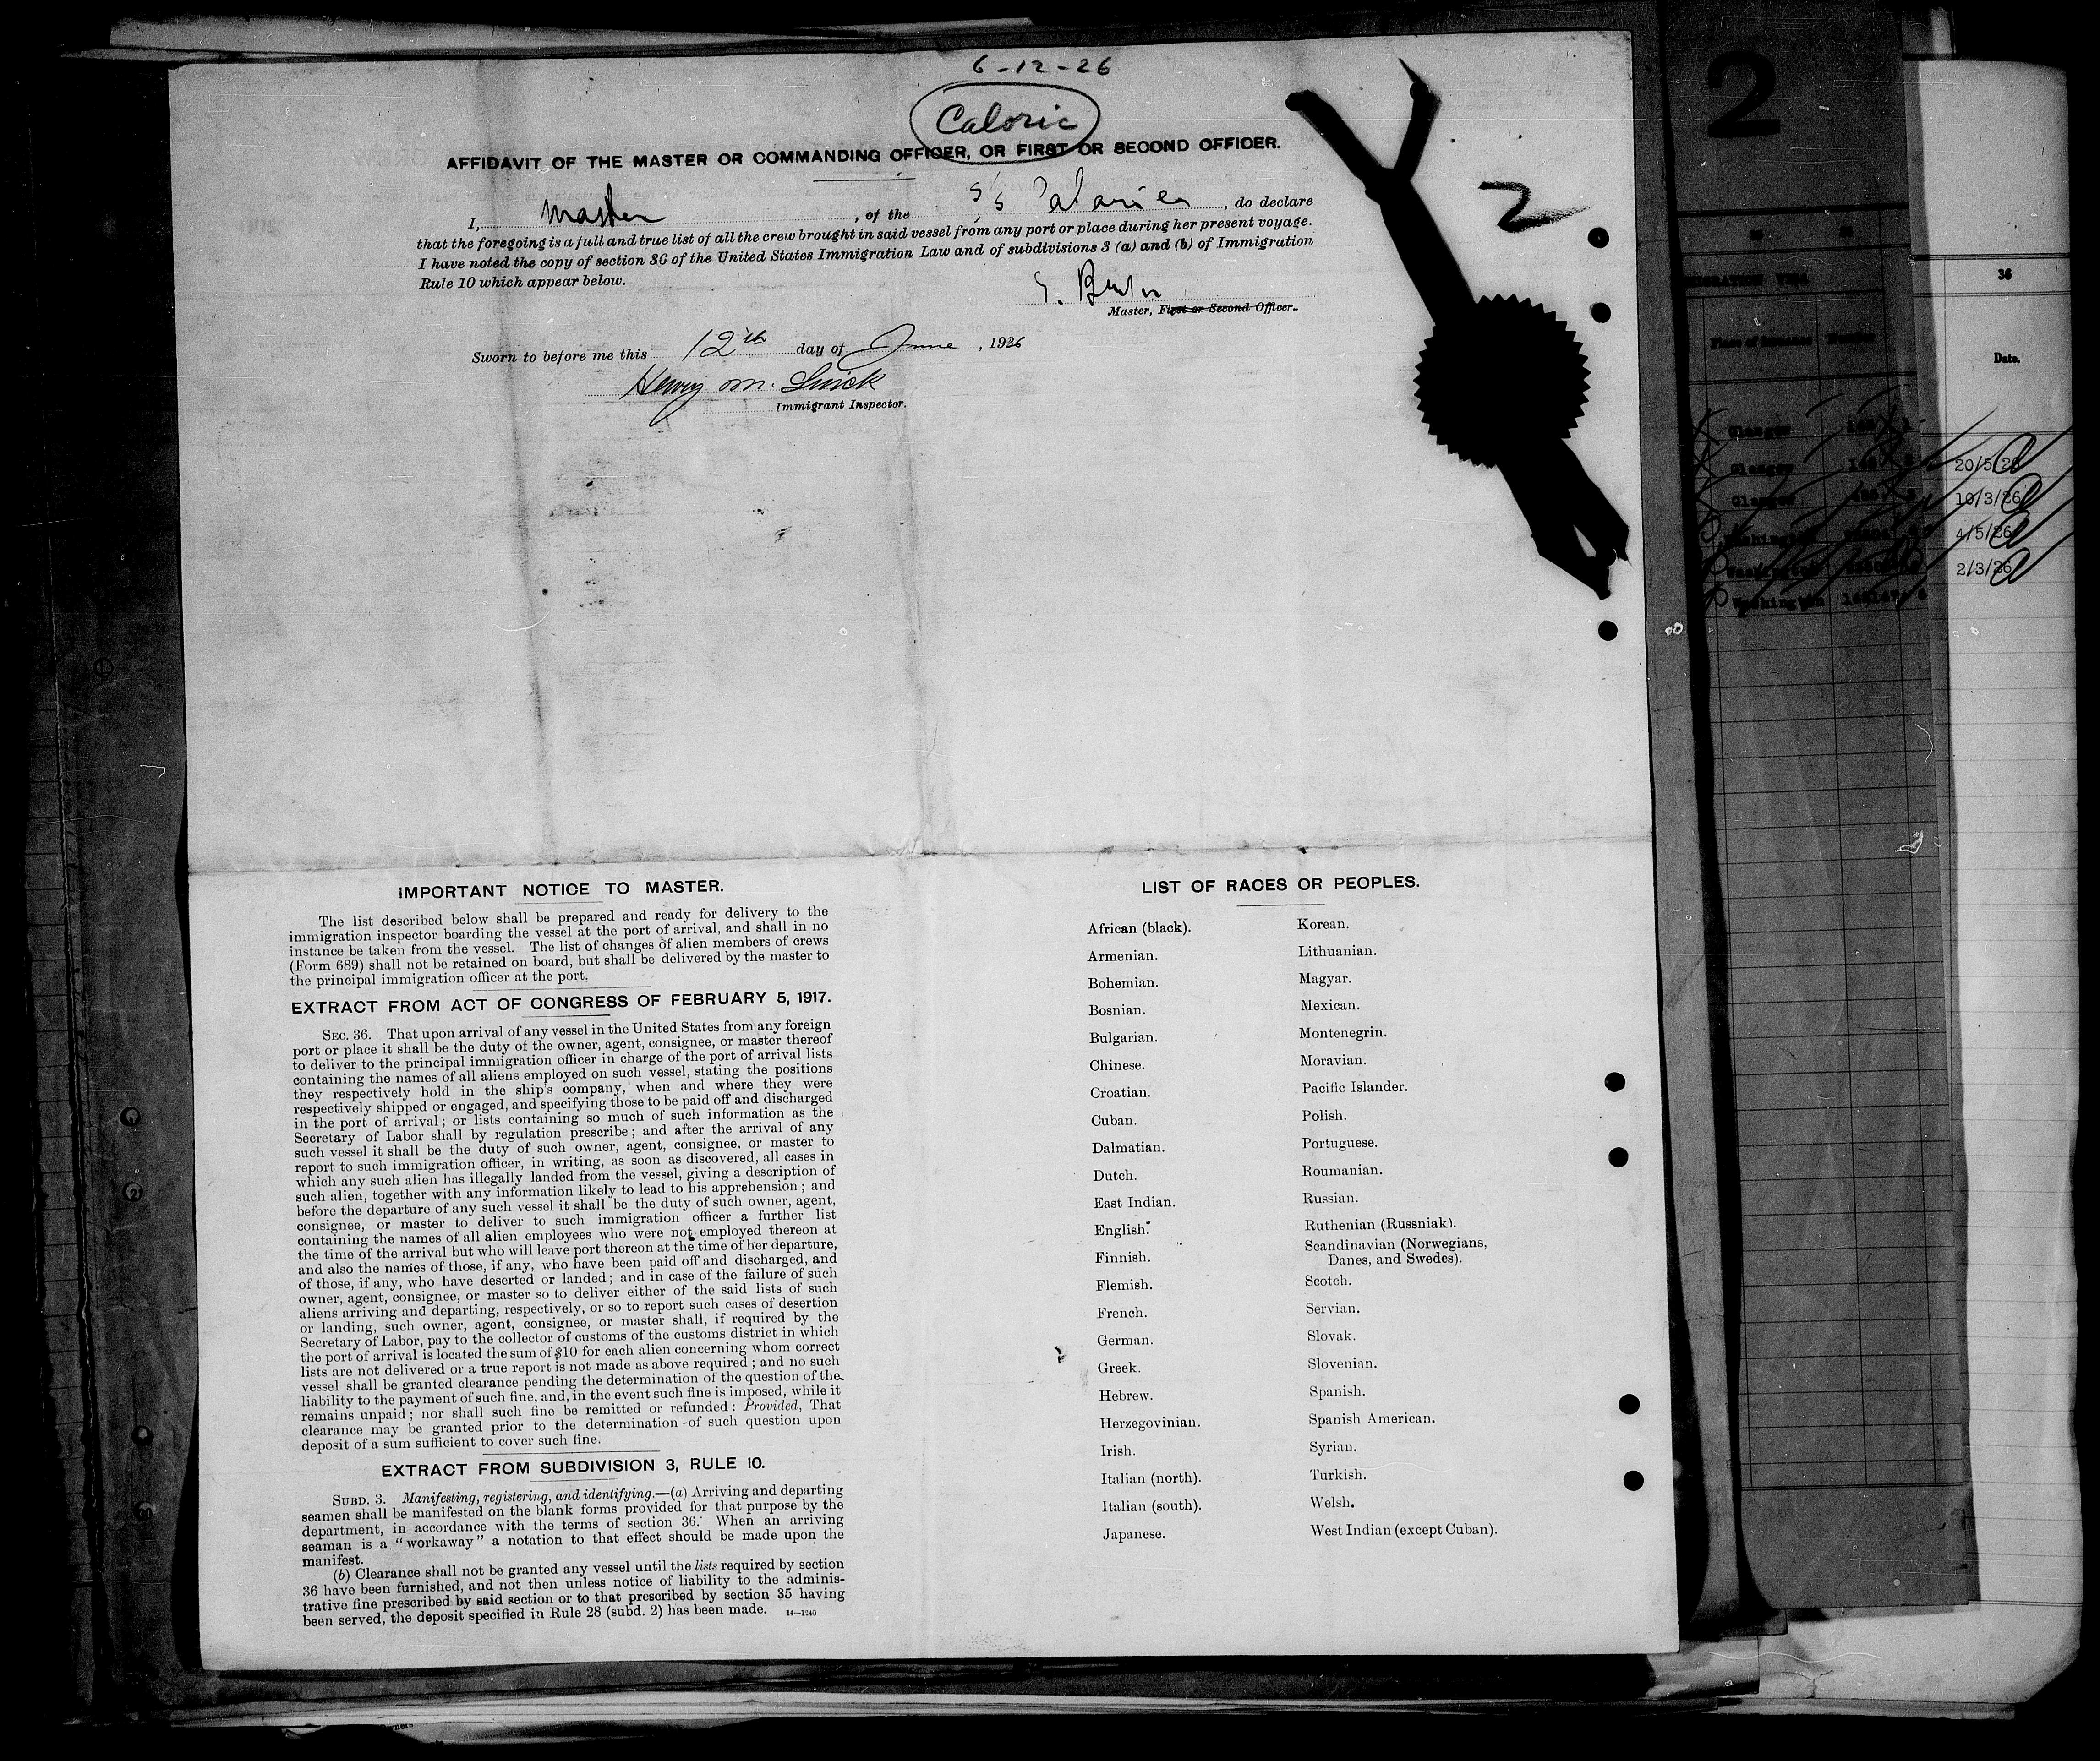 6-12-26
Caloric
AFFIDAVIT OF THE MASTER OR COMMANDING OFFICER, OR FIRST OR SECOND OFFICER.
I, Master, of the S/S, do declare
that the foregoing is a full and true list of all the crew brought in said vessel from any port or place during her present voyage.
I have noted the copy of section 36 of the United States Immigration Law and of subdivisions 3 (a) and (b) of Immigration
Rule 10 which appear below.
Master, First or Second Officer.
Sworn to before me this 12th day of June, 1926
Henry M.
Immigrant Inspector.
2
IMPORTANT NOTICE TO MASTER.
The list described below shall be prepared and ready for delivery to the
immigration inspector boarding the vessel at the port of arrival, and shall in no
instance be taken from the vessel. The list of changes of alien members of crews
(Form 689) shall not be retained on board, but shall be delivered by the master to
the principal immigration officer at the port.
EXTRACT FROM ACT OF CONGRESS OF FEBRUARY 5, 1917.
SEC. 36. That upon arrival of any vessel in the United States from any foreign
port or place it shall be the duty of the owner, agent, consignee, or master thereof
to deliver to the principal immigration officer in charge of the port of arrival lists
containing the names of all aliens employed on such vessel, stating the positions
they respectively hold in the ship's company, when and where they were
respectively shipped or engaged, and specifying those to be paid off and discharged
in the port of arrival; or lists containing so much of such information as the
Secretary of Labor shall by regulation prescribe; and after the arrival of any
such vessel it shall be the duty of such owner, agent, consignee, or master to
report to such immigration officer, in writing, as soon as discovered, all cases in
which any such alien has illegally landed from the vessel, giving a description of
such alien, together with any information likely to lead to his apprehension; and
before the departure of any such vessel it shall be the duty of such owner, agent,
consignee, or master to deliver to such immigration officer a further list
containing the names of all alien employees who were not employed thereon at
the time of the arrival but who will leave port thereon at the time of her departure,
and also the names of those, if any, who have been paid off and discharged, and
of those, if any, who have deserted or landed; and in case of the failure of such
owner, agent, consignee, or master so to deliver either of the said lists of such
aliens arriving and departing, respectively, or so to report such cases of desertion
or landing, such owner, agent, consignee, or master shall, if required by the
Secretary of Labor, pay to the collector of customs of the customs district in which
the port of arrival is located the sum of $10 for each alien concerning whom correct
lists are not delivered or a true report is not made as above required; and no such
vessel shall be granted clearance pending the determination of the question of the
liability to the payment of such fine, and, in the event such fine is imposed, while it
remains unpaid; nor shall such fine be remitted or refunded: Provided, That
clearance may be granted prior to the determination of such question upon
deposit of a sum sufficient to cover such fine.
EXTRACT FROM SUBDIVISION 3, RULE 10.
SUBD. 3. Manifesting, registering, and identifying.—(a) Arriving and departing
seamen shall be manifested on the blank forms provided for that purpose by the
department, in accordance with the terms of section 36. When an arriving
seaman is a "workaway" a notation to that effect should be made upon the
manifest.
(b) Clearance shall not be granted any vessel until the lists required by section
36 have been furnished, and not then unless notice of liability to the adminis-
trative fine prescribed by said section or to that prescribed by section 35 having
been served, the deposit specified in Rule 28 (subd. 2) has been made. 14—1240
LIST OF RACES OR PEOPLES.
African (black).
Armenian.
Bohemian.
Bosnian.
Bulgarian.
Chinese.
Croatian.
Cuban.
Dalmatian.
Dutch.
East Indian.
English.
Finnish.
Flemish.
French.
German.
Greek.
Hebrew.
Herzegovinian.
Irish.
Italian (north).
Italian (south).
Japanese.
Korean.
Lithuanian.
Magyar.
Mexican.
Montenegrin.
Moravian.
Pacific Islander.
Polish.
Portuguese.
Roumanian.
Russian.
Ruthenian (Russniak).
Scandinavian (Norwegians,
Danes, and Swedes).
Scotch.
Servian.
Slovak.
Slovenian.
Spanish.
Spanish American.
Syrian.
Turkish.
Welsh.
West Indian (except Cuban).
2
Place of Issuance Number
Glasgow
Glasgow
Glasgow
Washington
Washington
Washington
36
Date.
20/5/26
10/3/26
4/5/26
2/3/26